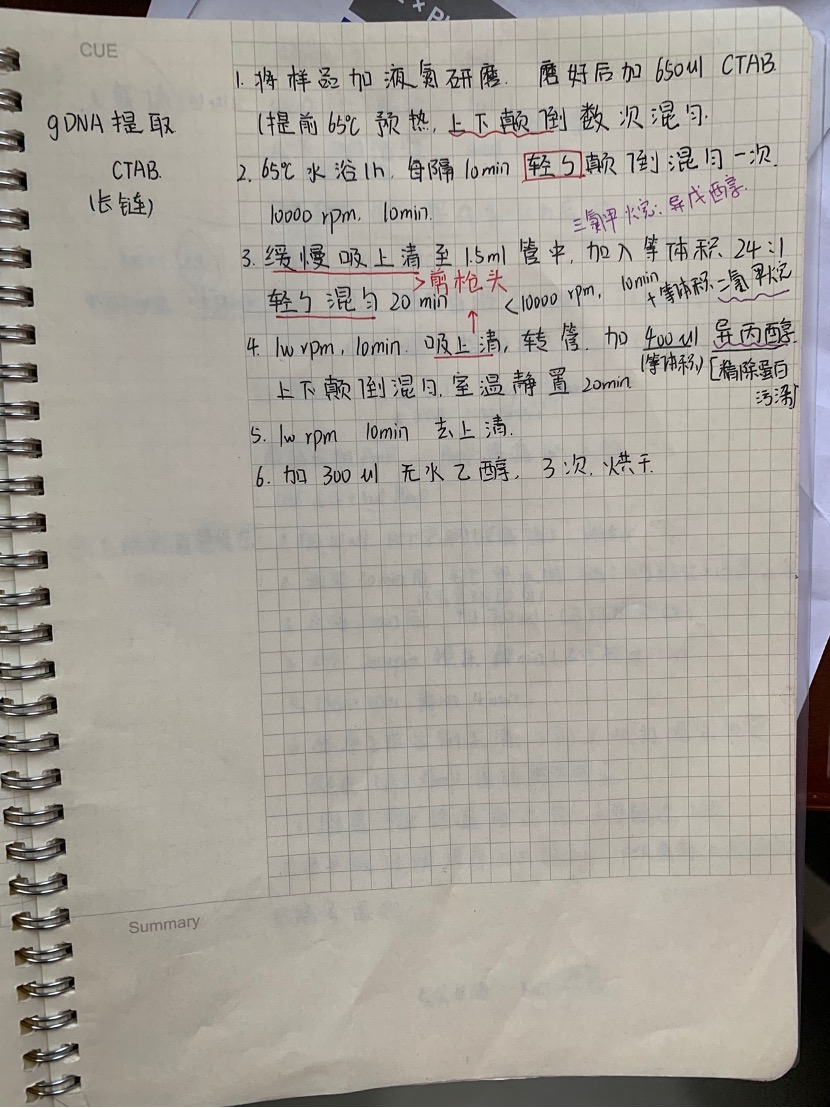 CUE
gDNA提取
CTAB.
(长链)
1. 将样品加液氮研磨. 磨好后加650ul CTAB.
(提前65℃预热, 上下颠倒数次混匀.
2. 65℃水浴1h, 每隔10min 轻匀颠倒混匀一次.
10000 rpm, 10min.
三氯甲烷:异戊醇
3. 缓慢吸上清至1.5ml管中, 加入等体积 24:1
>剪枪头
轻匀混匀20min <10000 rpm, 10min
+等体积 三氯甲烷
4. 1w rpm, 10min. 吸上清, 转管. 加400ul 异丙醇.
(等体积) [精除蛋白
污染]
上下颠倒混匀, 室温静置20min.
5. 1w rpm 10min 去上清.
6. 加300ul 无水乙醇, 3次, 烘干.
Summary